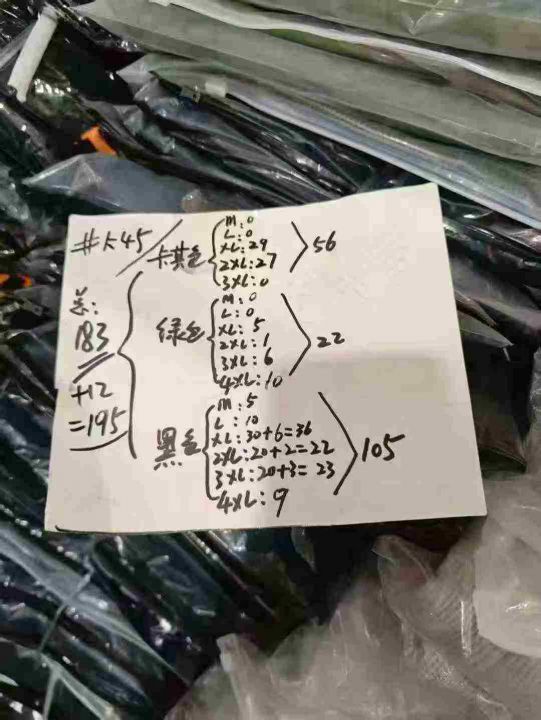 #卡45
卡其色
M:0
L:0
XL:29
2XL:27
3XL:0
56
绿色
M:0
L:0
XL:5
2XL:1
3XL:6
4XL:10
22
黑色
M:5
L:10
XL:30+6=36
2XL:20+2=22
3XL:20+3=23
4XL:9
105
183
+12
=195